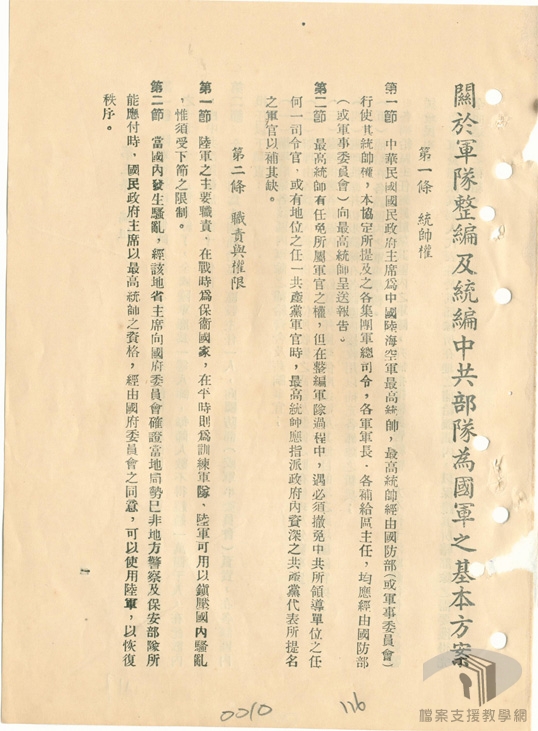 關於軍隊整編及統編中共部隊為國軍之基本方案
第一條 統帥權
第一節 中華民國國民政府主席爲中國陸海空軍最高統帥，最高統帥經由國防部（或軍事委員會）
行使其統帥權，本協定所提及之各集團軍總司令，各軍軍長，各補給區主任，均應經由國防部
（或軍事委員會）向最高統帥呈送報告。
第二節 最高統帥有任免所屬軍官之權，但在整編軍隊過程中，遇必須撤免中共所領導單位之任
何一司令官，或有地位之任一共產黨軍官時，最高統帥應指派政府內資深之共產黨代表所提名
之軍官以補其缺。
第二條 職責與權限
第一節 陸軍之主要職責，在戰時爲保衛國家，在平時則爲訓練軍隊、陸軍可用以鎭壓國內騷亂
，惟須受下節之限制。
第二節 當國內發生騷亂，經該地省主席向國府委員會確證當地局勢已非地方警察及保安部隊所
能應付時，國民政府主席以最高統帥之資格，經由國府委員會之同意，可以使用陸軍，以恢復
秩序。
一
0010
116
檔案支援教學網